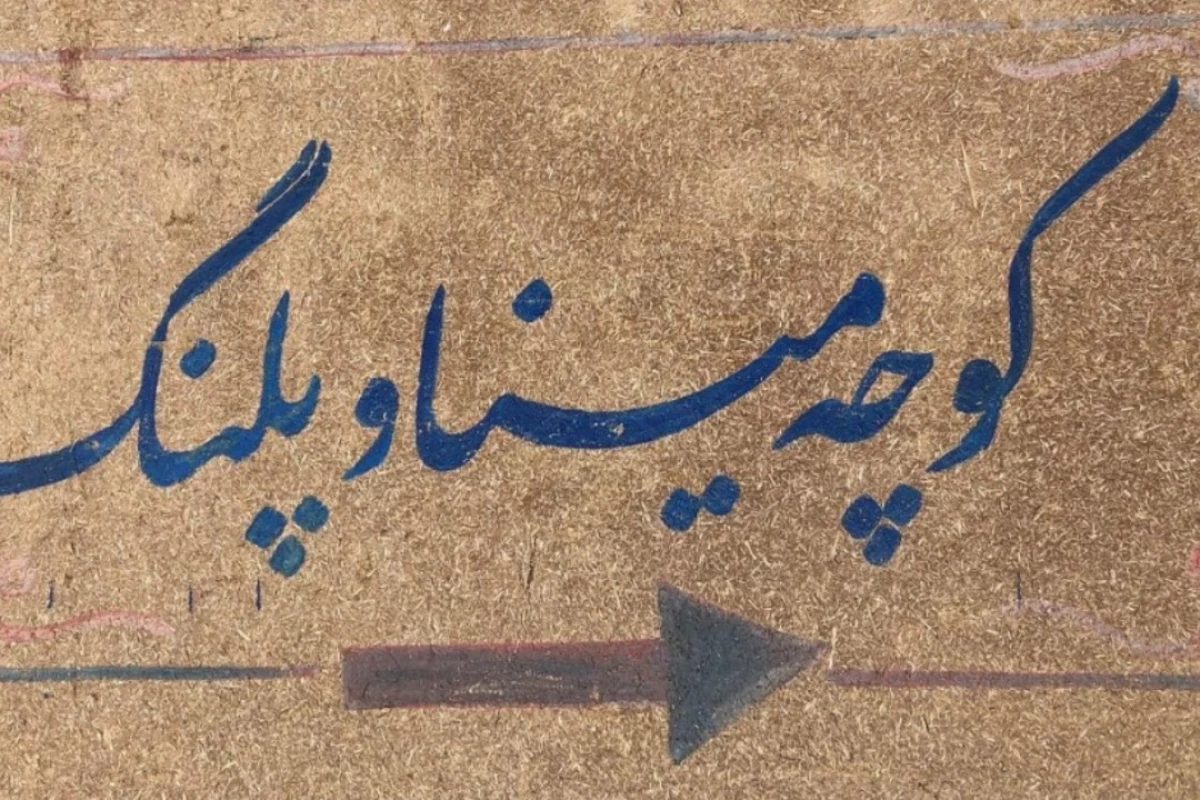 کوچه مینا و پلنگ